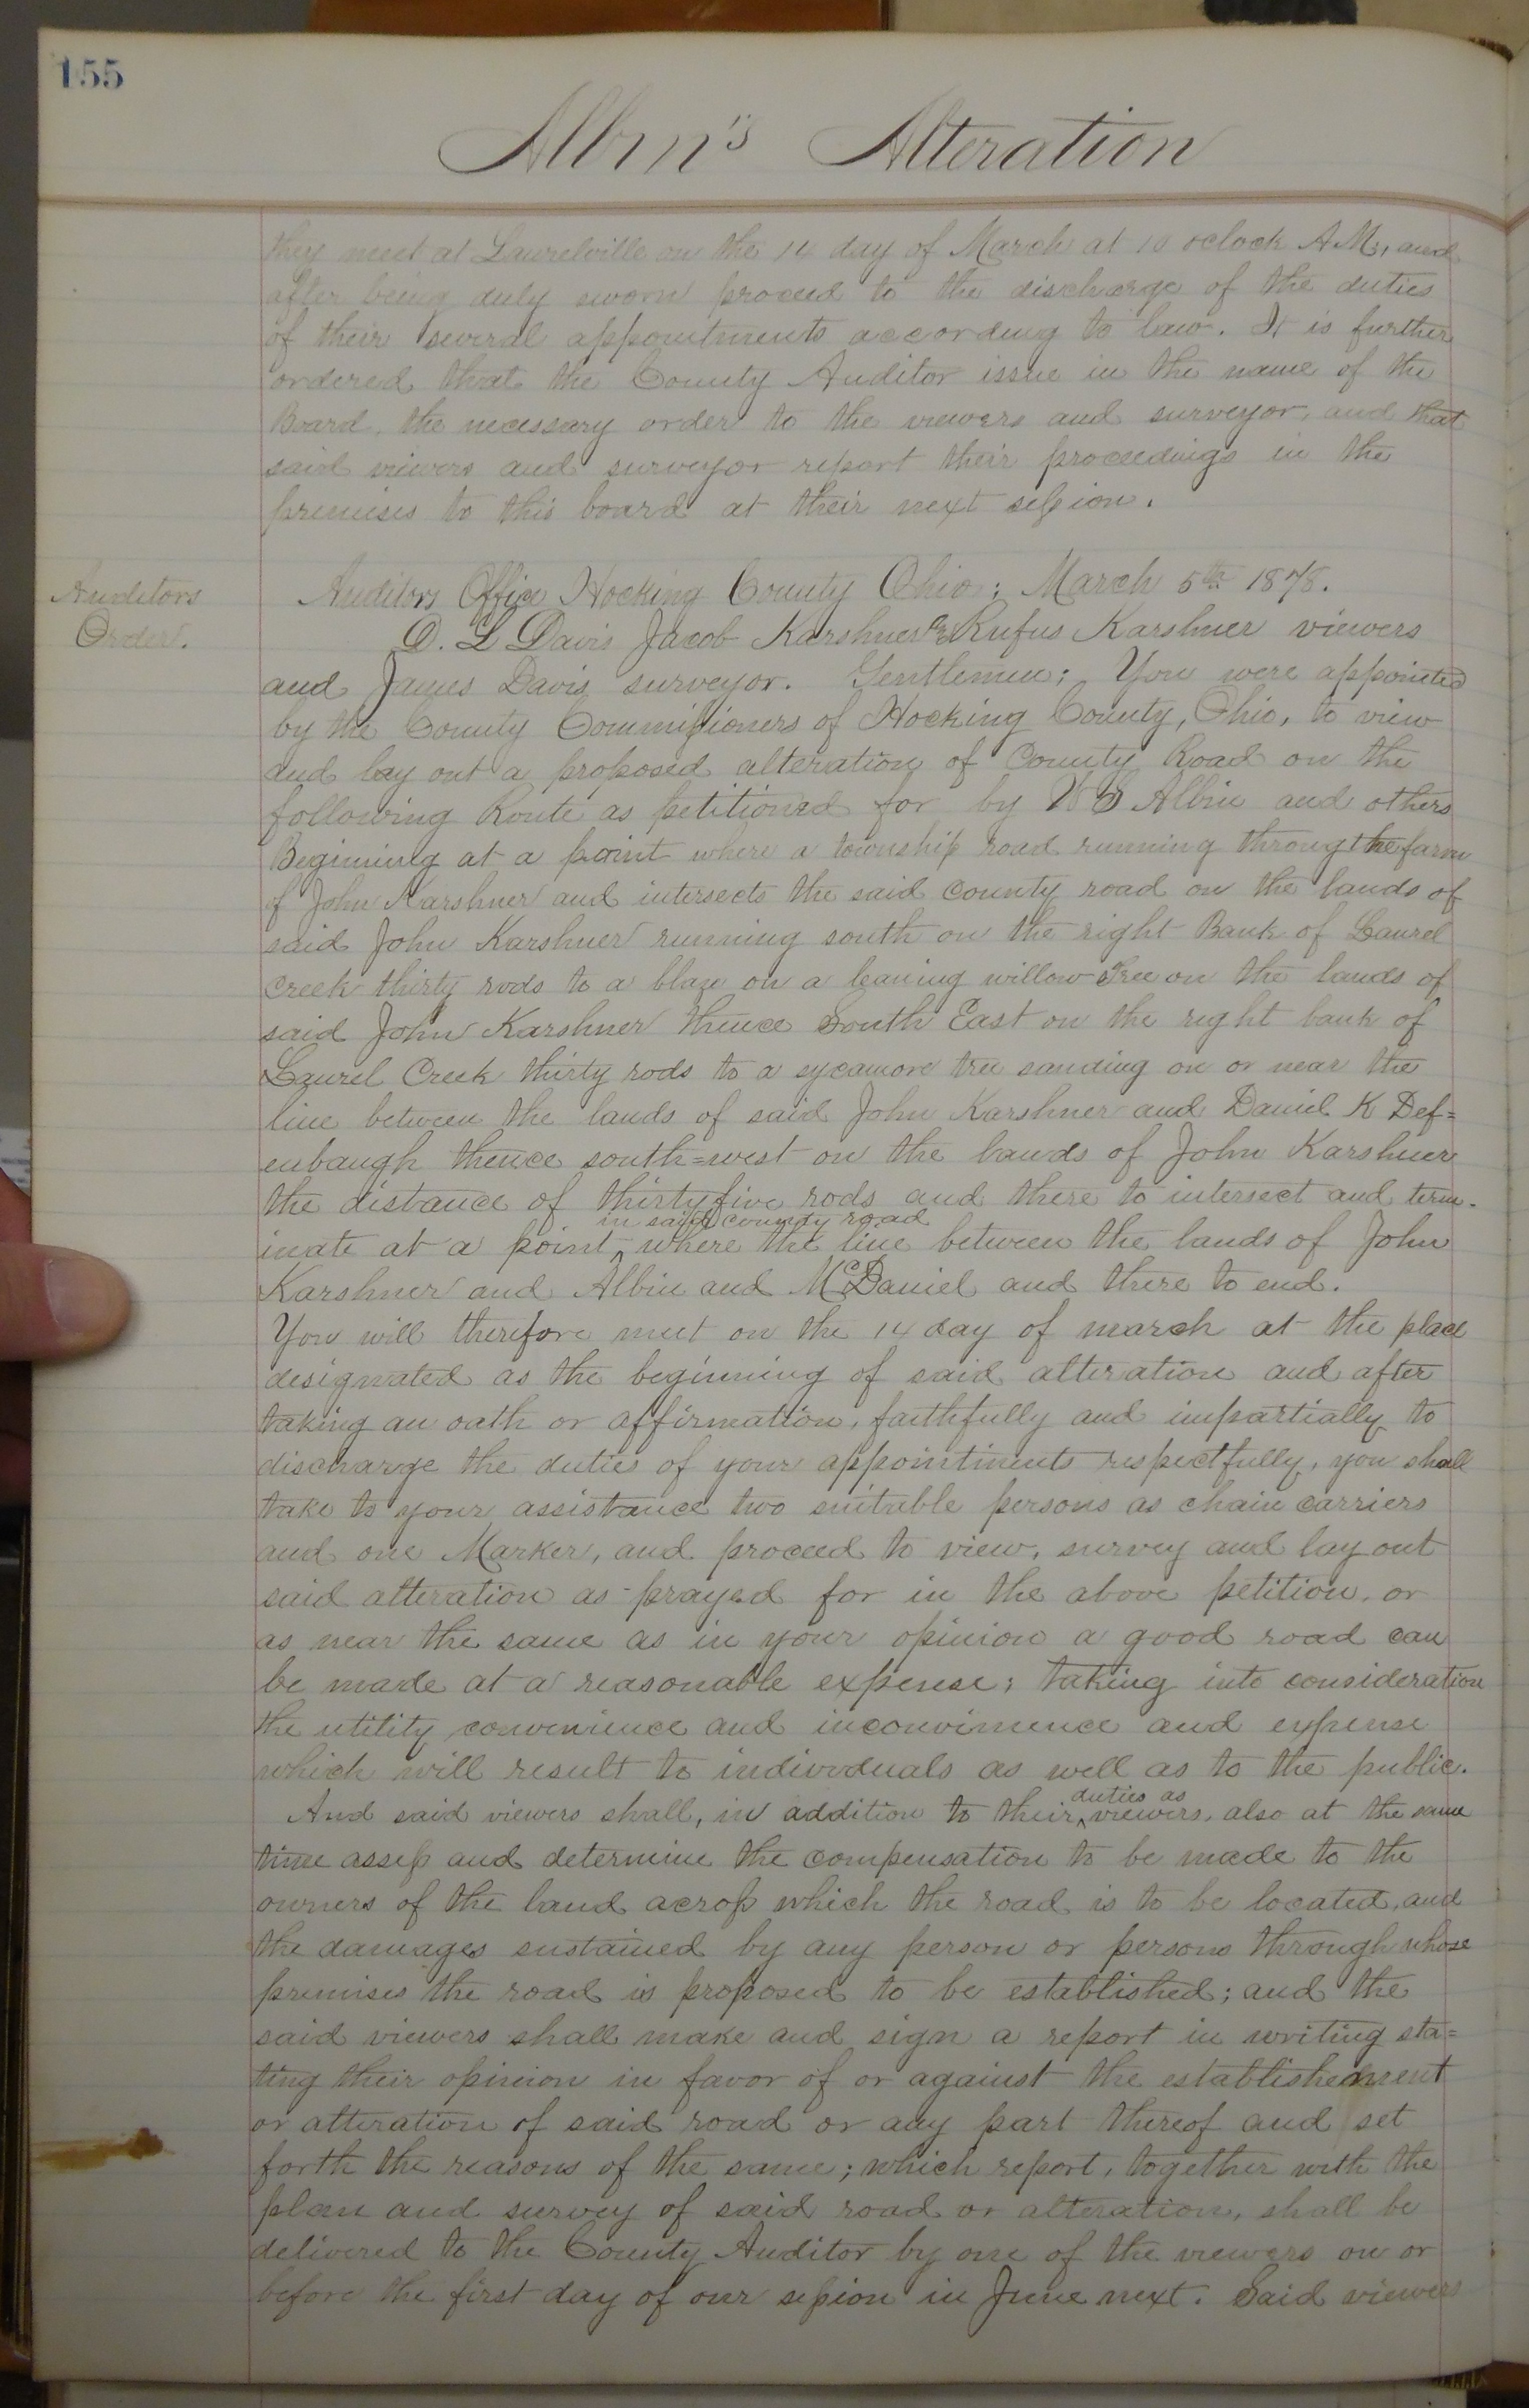 155
Albin's Alteration
they meet at Laurelville on the 14 day of March at 10 oclock A.M., and
after being duly sworn proceed to the discharge of the duties
of their several appointments according to law. It is further
ordered that the County Auditor issue in the name of the
Board, the necessary order to the viewers and surveyor, and that
said viewers and surveyor report their proceedings in the
premises to this board at their next session.
Auditors
Order.
Auditors Office Hocking County Ohio; March 5th 1878.
D. L Davis Jacob Karshner & Rufus Karshner viewers
and James Davis surveyor. Gentlemen; You were appointed
by the County Commissioners of Hocking County, Ohio, to view
and lay out a proposed alteration of County Road on the
following Route as petitioned for by W S Albin and others
Beginning at a point where a township road running throug the farm
of John Karshner and intersects the said county road on the lands of
said John Karshner running south on the right Bank of Laurel
Creek thirty rods to a blaze on a leaning willow Tree on the lands of
said John Karshner thence South East on the right bank of
Laurel Creek thirty rods to a sycamore tree sanding on or near the
line between the lands of said John Karshner and Daniel K Def=
enbaugh thence south=west on the lands of John Karshner
the distance of thirty five rods and there to intersect and term-
in said county road
inate at a point ^ where the line between the lands of John
Karshner and Albin and McDaniel and there to end.
You will therefore meet on the 14 day of march at the place
designated as the beginning of said alteration and after
taking an oath or affirmation, faithfully and impartially to
discharge the duties of your appointments respectfully, you shall
take to your assistance two suitable persons as chain carriers
and one Marker, and proceed to view, survey and lay out
said alteration as prayed for in the above petition, or
as near the same as in your opinion a good road can
be made at a reasonable expense; taking into consideration
the utility convenience and inconvinence and expense
which will result to individuals as well as to the public.
duties as
And said viewers shall, in addition to their ^ viewers, also at the same
time assess and determine the compensation to be made to the
owners of the land across which the road is to be located, and
the damages sustained by any person or persons through whose
premises the road is proposed to be established; and the
said viewers shall make and sign a report in writing sta=
ting their opinion in favor of or against the establishement
or alteration of said road or any part thereof and set
forth the reasons of the same; which report, together with the
plan and survey of said road or alteration, shall be
delivered to the County Auditor by one of the viewers on or
before the first day of our session in June next. Said viewers